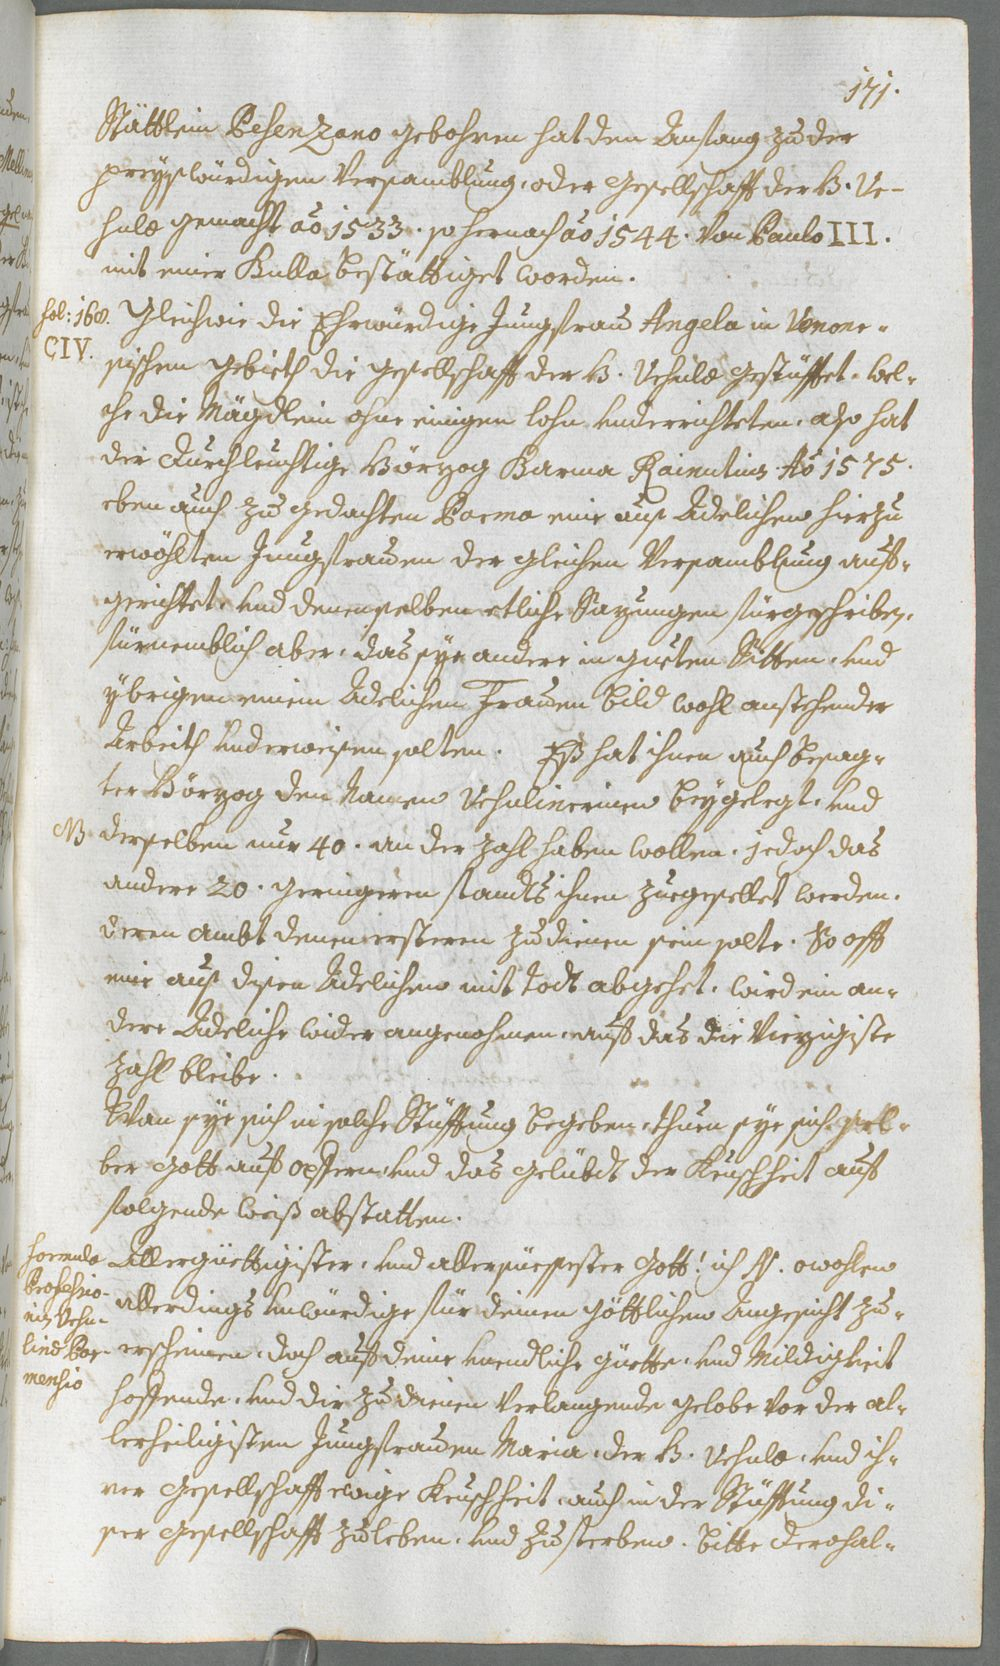 171.
Stättlein Desenzano gebohren hat den Anfang zu der
preyßwürdigen Versamblung, oder Gesellschafft der H. Ur-
sulæ gemacht aõ 1533. so hernach aõ 1544. von Paulo III.
mit einer Bulla bestättiget worden.
fol: 168. Gleichwie die Ehrwürdige Jungfrau Angela in Vene-
CIV. sischen gebieth die Gesellschafft der H. Ursulæ gestüfftet, wel-
che die Mägdlein ohne einigen lohn underrichteten, also hat
der Durchleuchtige Hörzog Parma Rainutius Aõ 1575.
eben auch zu gedachten Parma eine auß Adelichen hierzu
erwöhlten Jungfrauen der gleichen Versamblung auf-
gerichtet, und denenselben etliche Sazungen fürgeschriben,
fürnemblich aber, das sye andere in guten Sitten, und
ybrigen einem Adelichen Frauen Bild wohl anstehender
Arbeith underweisen solten. Eß hat ihnen auch besag-
ter Hörzog den Namen Ursulinerinen beygelegt, und
NB. derselben nur 40. an der zahl haben wollen, jedoch das
andere 20. geringeren standts ihnen zuegesellet werden,
deren ambt denen ersteren zu dienen sein solte. So offt
eine auß disen Adelichen mit todt abgehet, wird ein an-
dere Adeliche wider angenohmen, auf das die Vierzigiste
zahl bleibe.
Wan sye sich in solche Stüfftung begeben, thuen sye sich sel-
ber Gott auf opfern, und das gelübdt der Keuschheit auf
folgende weiß abstatten.
Formula Professio-
nis Ursu-
linæ Par-
mensis
Allergüettigister, und allersüessester Gott! ich N. owohlen
allerdings unwürdige für deinen Göttlichen Angesicht zu-
erscheinen, doch auf deine unendliche Güette, und Mildigkeit
hoffende, und dir zu dienen verlangende gelobe vor der al-
lerheiligisten Jungfrauen Maria, der H. Ursulæ, und ih-
rer Gesellschafft ewige Keuschheit, auch in der Stüfftung di-
ser Gesellschafft zu leben, und zu sterben. bitte derohal-